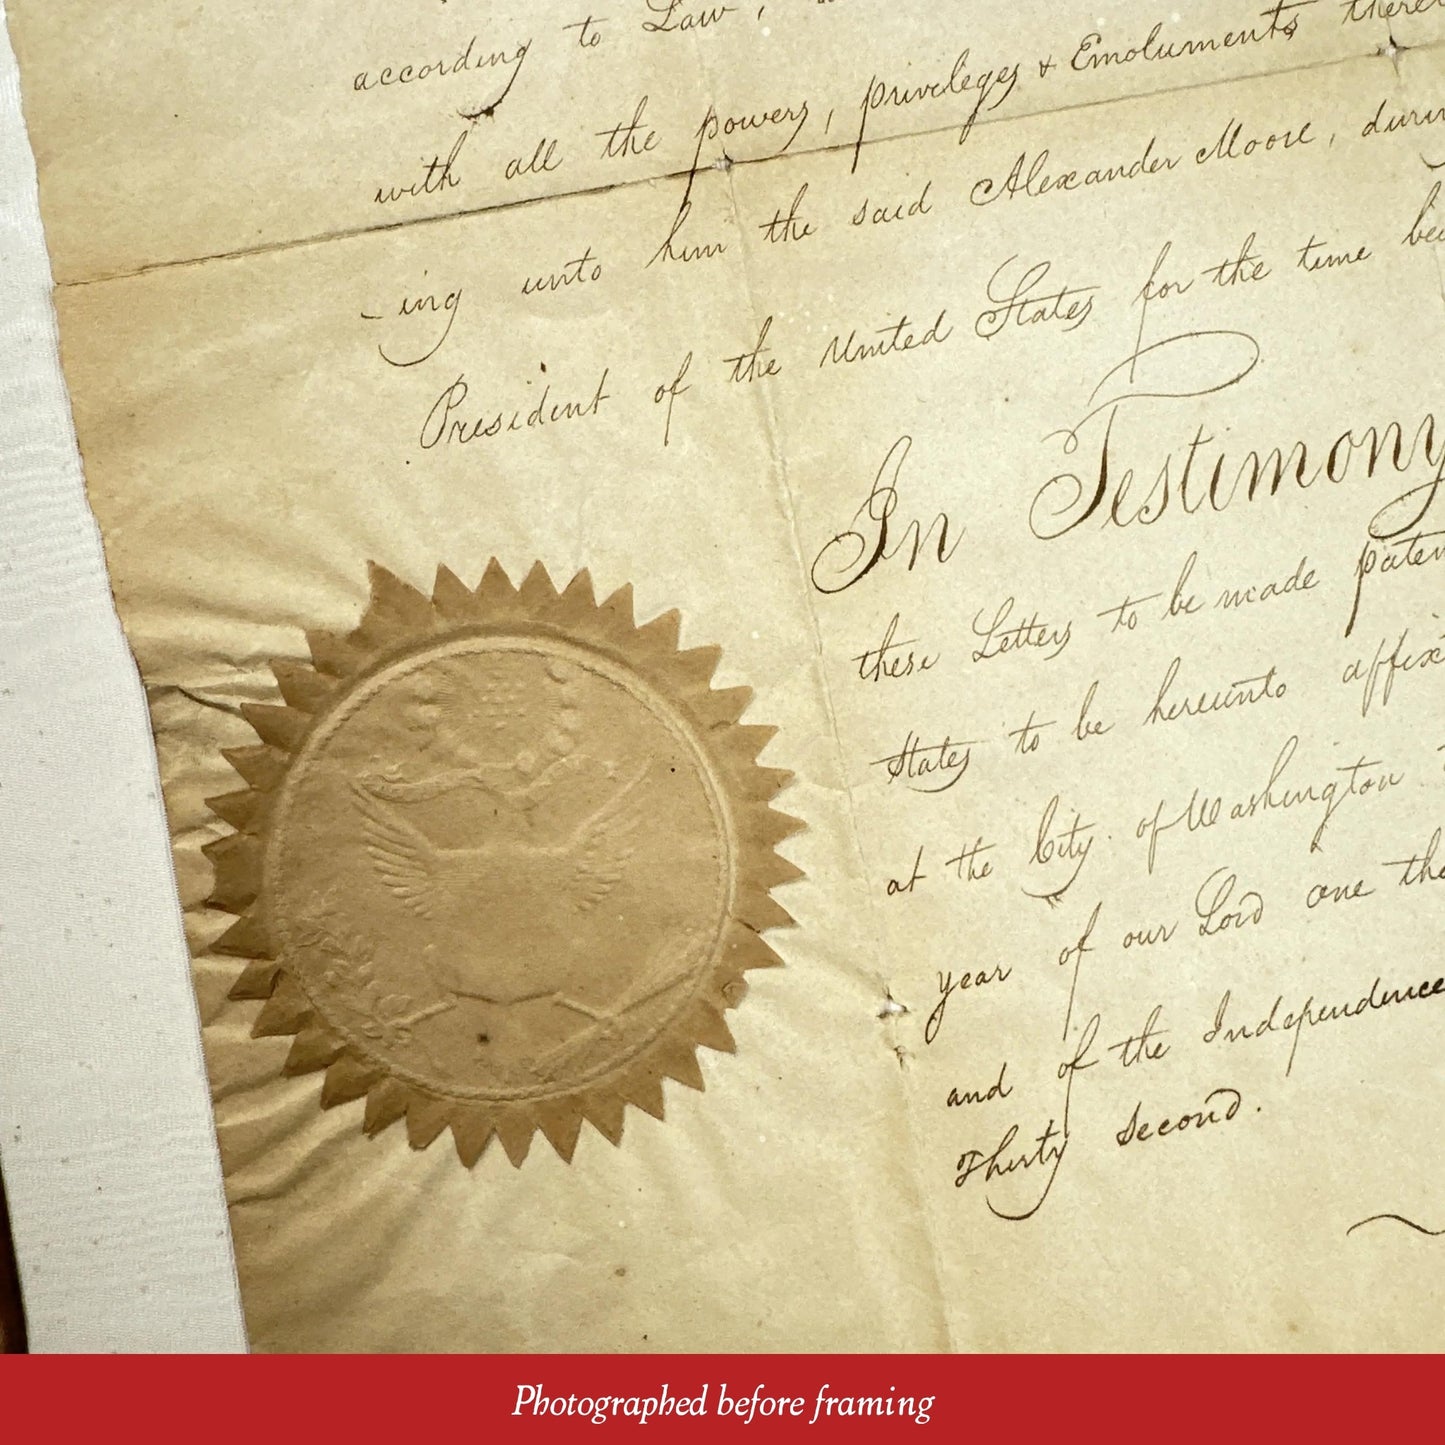 according to Law,
with all the powers, privileges & Emoluments
-ing unto him the said Alexander Moore,
President of the United States for the time
In Testimony
these Letters to be made
States to be hereunto
at the City of Washington
year of our Lord one
and of the Independence
Thirty second.
Photographed before framing